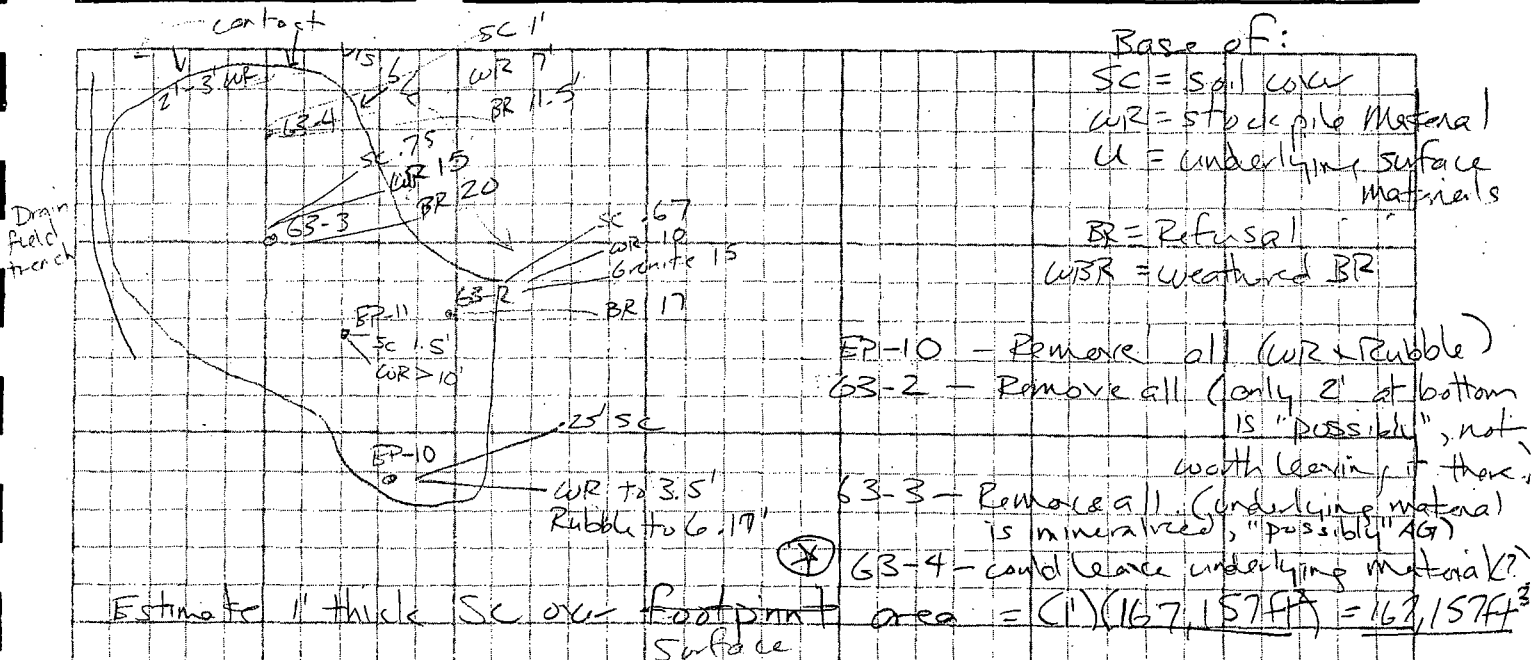 contact
SC 1'
WR 7'
BR 11.5'
2'-3' WR
63-4
SC .75
WR 15
BR 20
63-3
Drain
field
trench
SC .67
WR 10
Granite 15
63-2
BR 17
EP-11
SC 1.5'
WR > 10'
.25' SC
EP-10
WR to 3.5'
Rubble to 6.17'
Base of:
SC = soil cover
WR = stockpile Material
U = underlying surface
materials
BR = Refusal
WBR = weathered BR
EP-10 - Remove all (WR & Rubble)
63-2 - Remove all (only 2' at bottom
is "possibly", not
worth leaving it there)
63-3 - Remove all (underlying material
is mineralized, "possibly" AG)
63-4 - could leave underlying material(?)
Estimate 1' thick SC over footprint area = (1')(167,157ft²) = 167,157ft³
Surface